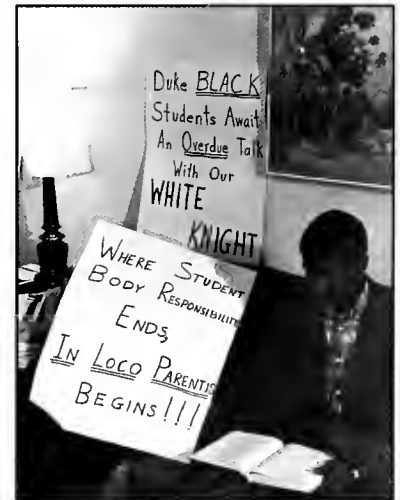 Duke BLACK
Students Await
An Overdue Talk
With Our
WHITE
KNIGHT
WHERE STUDENT
BODY RESPONSIBILITY
ENDS,
IN LOCO PARENTIS
BEGINS!!!